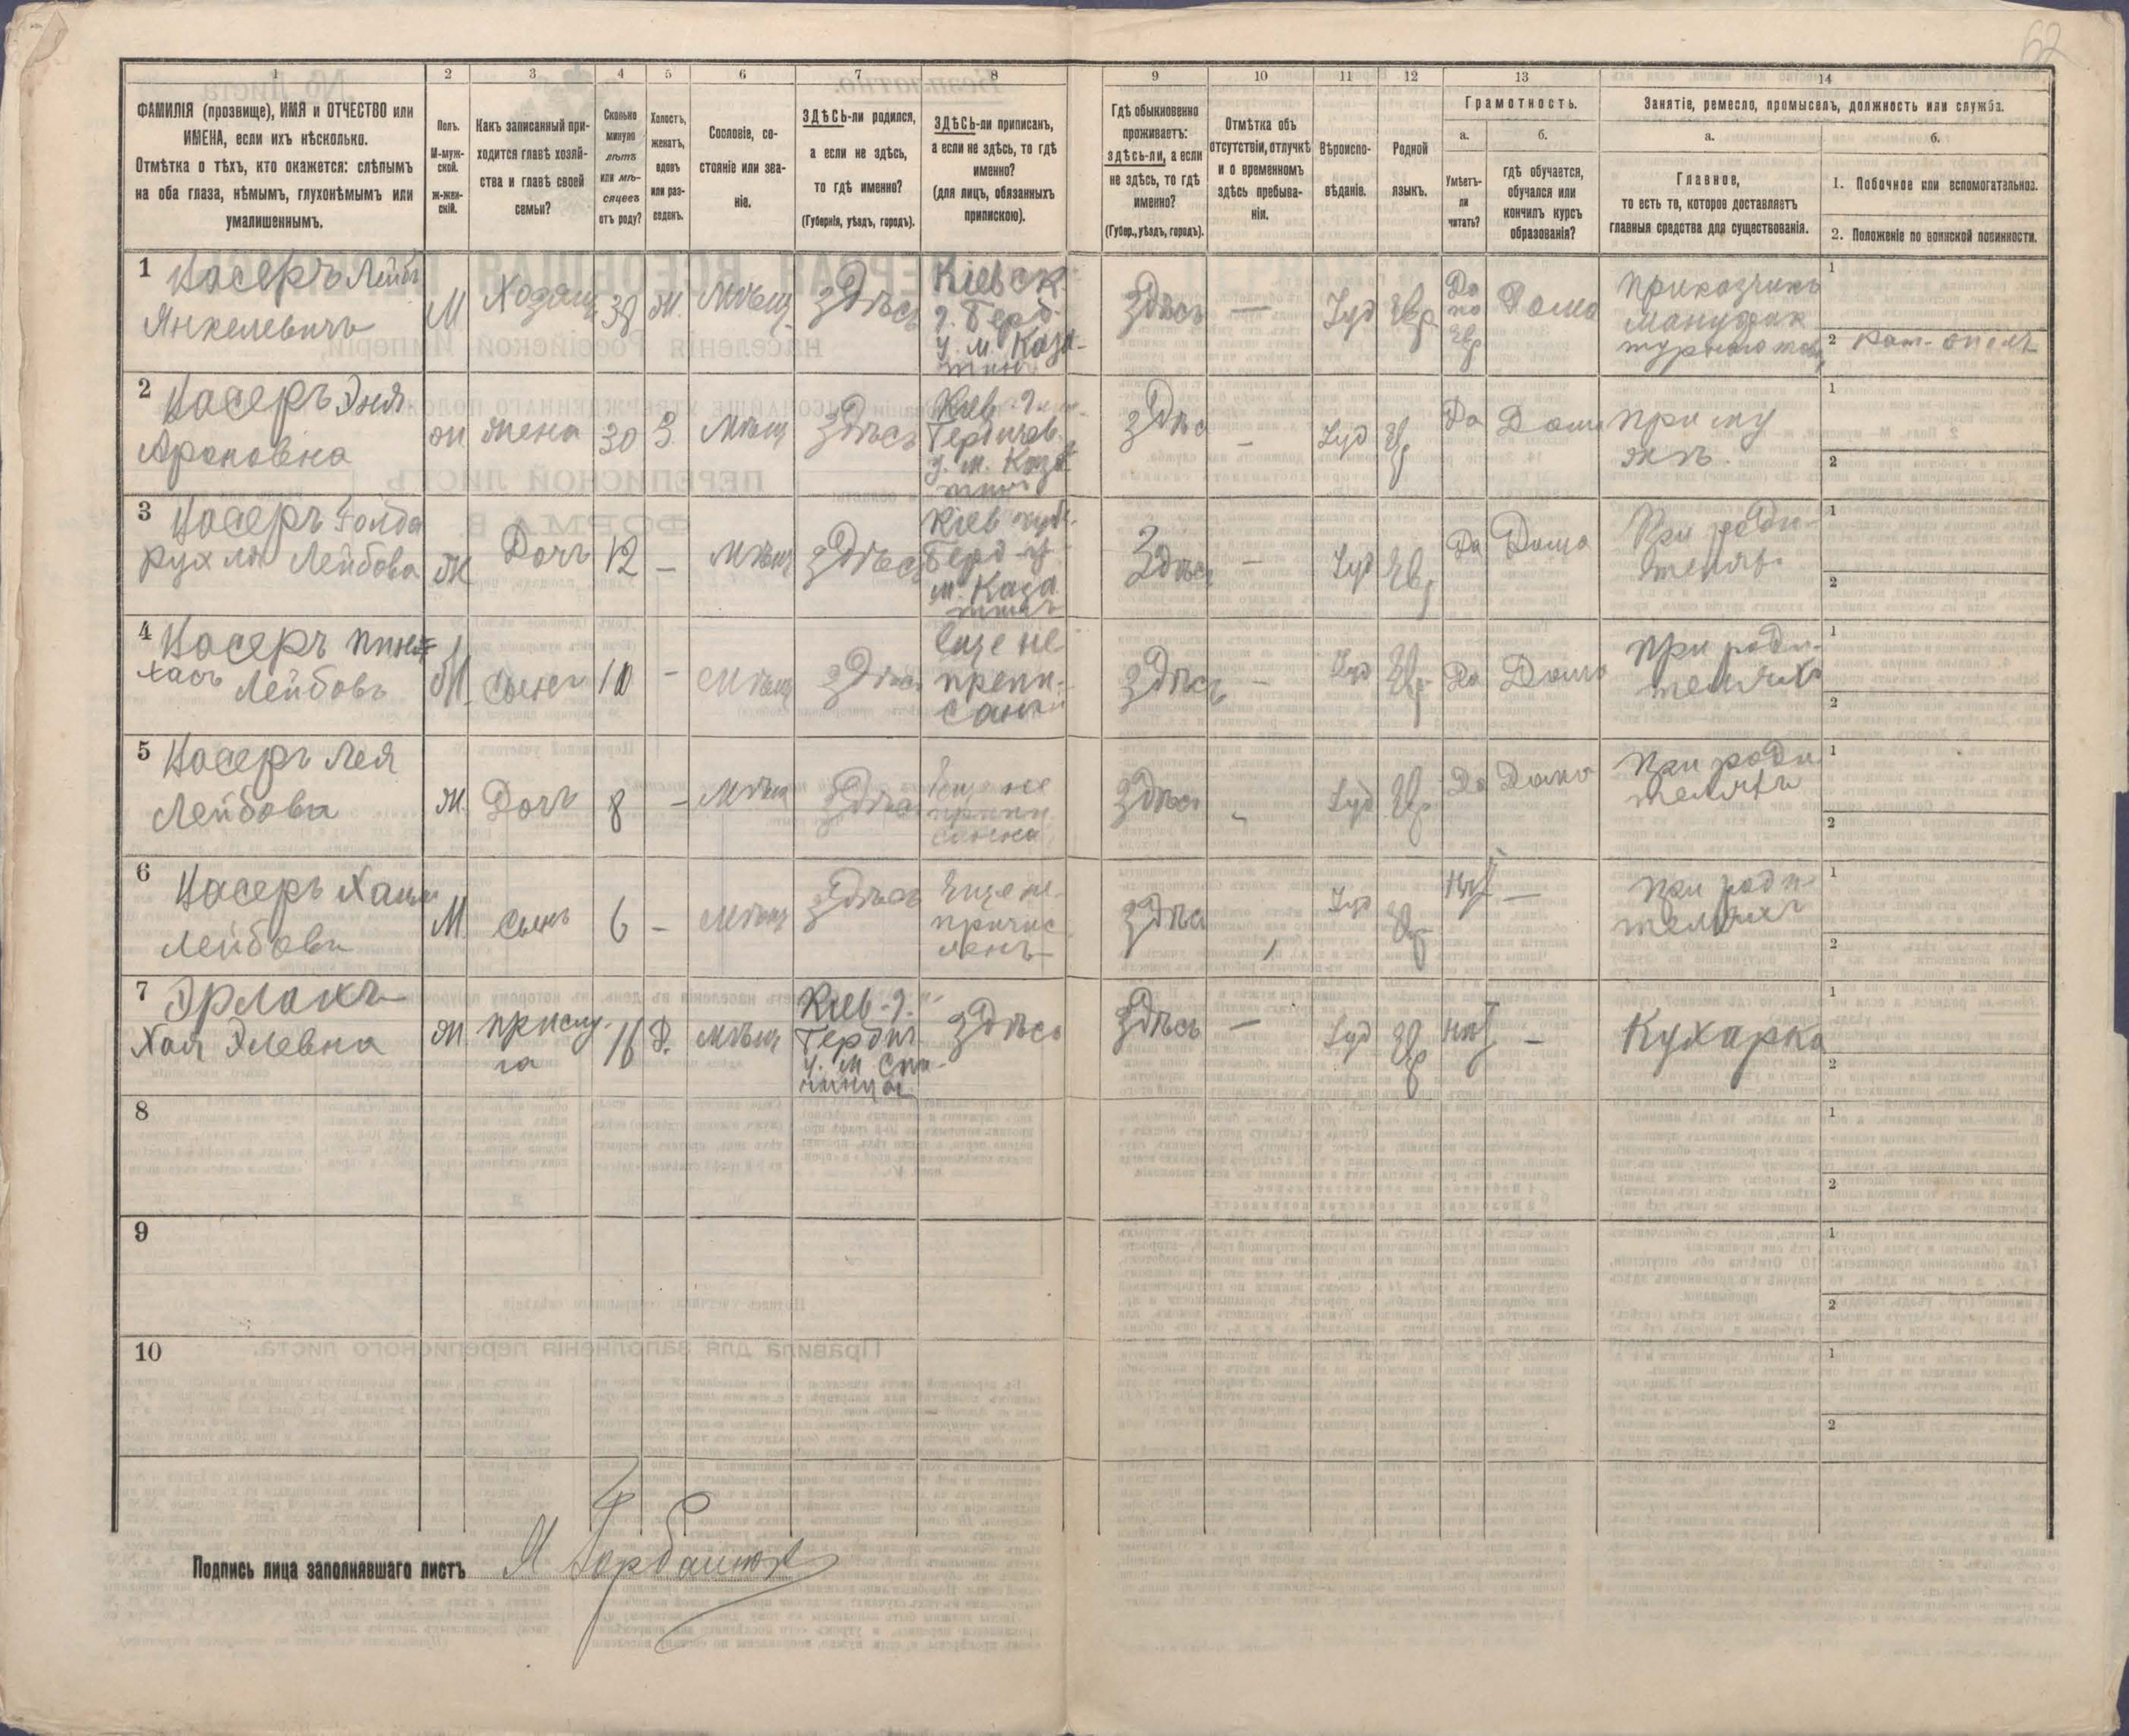 62
1
2
3
4
5
6
7
8
9
10
11
12
13
14
ФАМИЛІЯ (прозвище), ИМЯ и ОТЧЕСТВО или
ИМЕНА, если ихъ нѣсколько.
Отмѣтка о тѣхъ, кто окажется: слѣпымъ
на оба глаза, нѣмымъ, глухонѣмымъ или
умалишеннымъ.
Полъ.
М-муж-
ской.
ж-жен-
скій.
Какъ записанный при-
ходится главѣ хозяй-
ства и главѣ своей
семьи?
Сколько
минуло
лѣтъ
или мѣ-
сяцевъ
отъ роду?
Холостъ,
женатъ,
вдовъ
или раз-
веденъ.
Сословіе, со-
стояніе или зва-
ніе.
ЗДѢСЬ-ли родился,
а если не здѣсь,
то гдѣ именно?
(Губернія, уѣздъ, городъ).
ЗДѢСЬ-ли приписанъ,
а если не здѣсь, то гдѣ
именно?
(для лицъ, обязанныхъ
припискою).
Гдѣ обыкновенно
проживаетъ:
здѣсь-ли, а если
не здѣсь, то гдѣ
именно?
(Губер., уѣздъ, городъ).
Отмѣтка объ
отсутствіи, отлучкѣ
и о временномъ
здѣсь пребыва-
ніи.
Вѣроиспо-
вѣданіе.
Родной
языкъ.
Грамотность.
а.
Умѣетъ-
ли
читать?
б.
гдѣ обучается,
обучался или
кончилъ курсъ
образованія?
Занятіе, ремесло, промыселъ, должность или служба.
а.
Главное,
то есть то, которое доставляетъ
главныя средства для существованія.
б.
1. Побочное или вспомогательное.
2. Положеніе по воинской повинности.
1 Носеръ Лейба
Янкелевичъ
М
Хозяин
38
Ж.
Мѣщ
Здѣсь
Кіевск.
г. Берд.
у. м. Каза-
тин
Здѣсь
—
Іуд
Евр
Да
по
Евр
Дома
приказчикъ
Мануфак
турнаго
1
2 Рат. опол
2 Носеръ Эня
Ароновна
Ж
жена
30
З.
Мѣщ
Здѣсь
Кіев. г
Бердичев.
у. м. Каза
тин
Здѣс
—
Іуд
Евр
Да
Дома
При му
жѣ.
1
2
3 Носеръ Голда
Рухля Лейбова
Ж
Дочь
12
—
Мѣщ
Здѣсь
Кіев губ.
Берд. у
м. Каза
тинъ
Здѣсь
—
Іуд
Евр
Да
Дома
При роди-
теляхъ
1
2
4 Носеръ Пин
хасъ Лейбовъ
М.
Сынъ
10
—
Мѣщ
Здѣсь
Еще не
припи-
санъ
Здѣсь
—
Іуд
Евр
Да
Дома
При роди-
теляхъ
1
2
5 Носеръ Лея
Лейбова
Ж.
Дочь
8
—
Мѣщ
Здѣсь
Еще не
припи
сана
Здѣсь
Іуд
Евр
Да
Дома
При роди
теляхъ
1
2
6 Носеръ Хаим
Лейбовъ
М.
Сынъ
6
—
Мѣщ
Здѣсь
Еще не
причис
ленъ
Здѣс
Іуд
Евр
Нѣт
—
При роди-
теляхъ
1
2
7 Эрлахъ
Хая Элевна
Ж.
прислу-
га
Д.
Мѣщ
Кіев. г.
Бердич
у. м
Здѣсь
Здѣсь
—
Іуд
Евр
Нѣт
—
Кухарка
1
2
8
1
2
9
1
2
10
1
2
Подпись лица заполнявшаго листъ